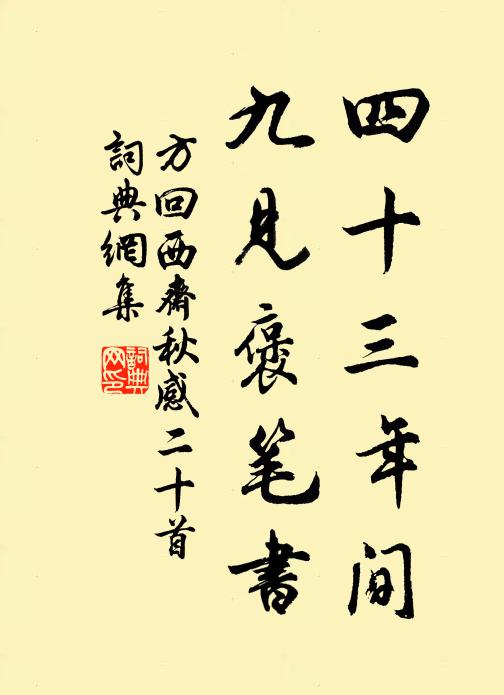 四十三年间
九见褒笔書
方回西齋秋感二十首
詞典網集
詞典網印